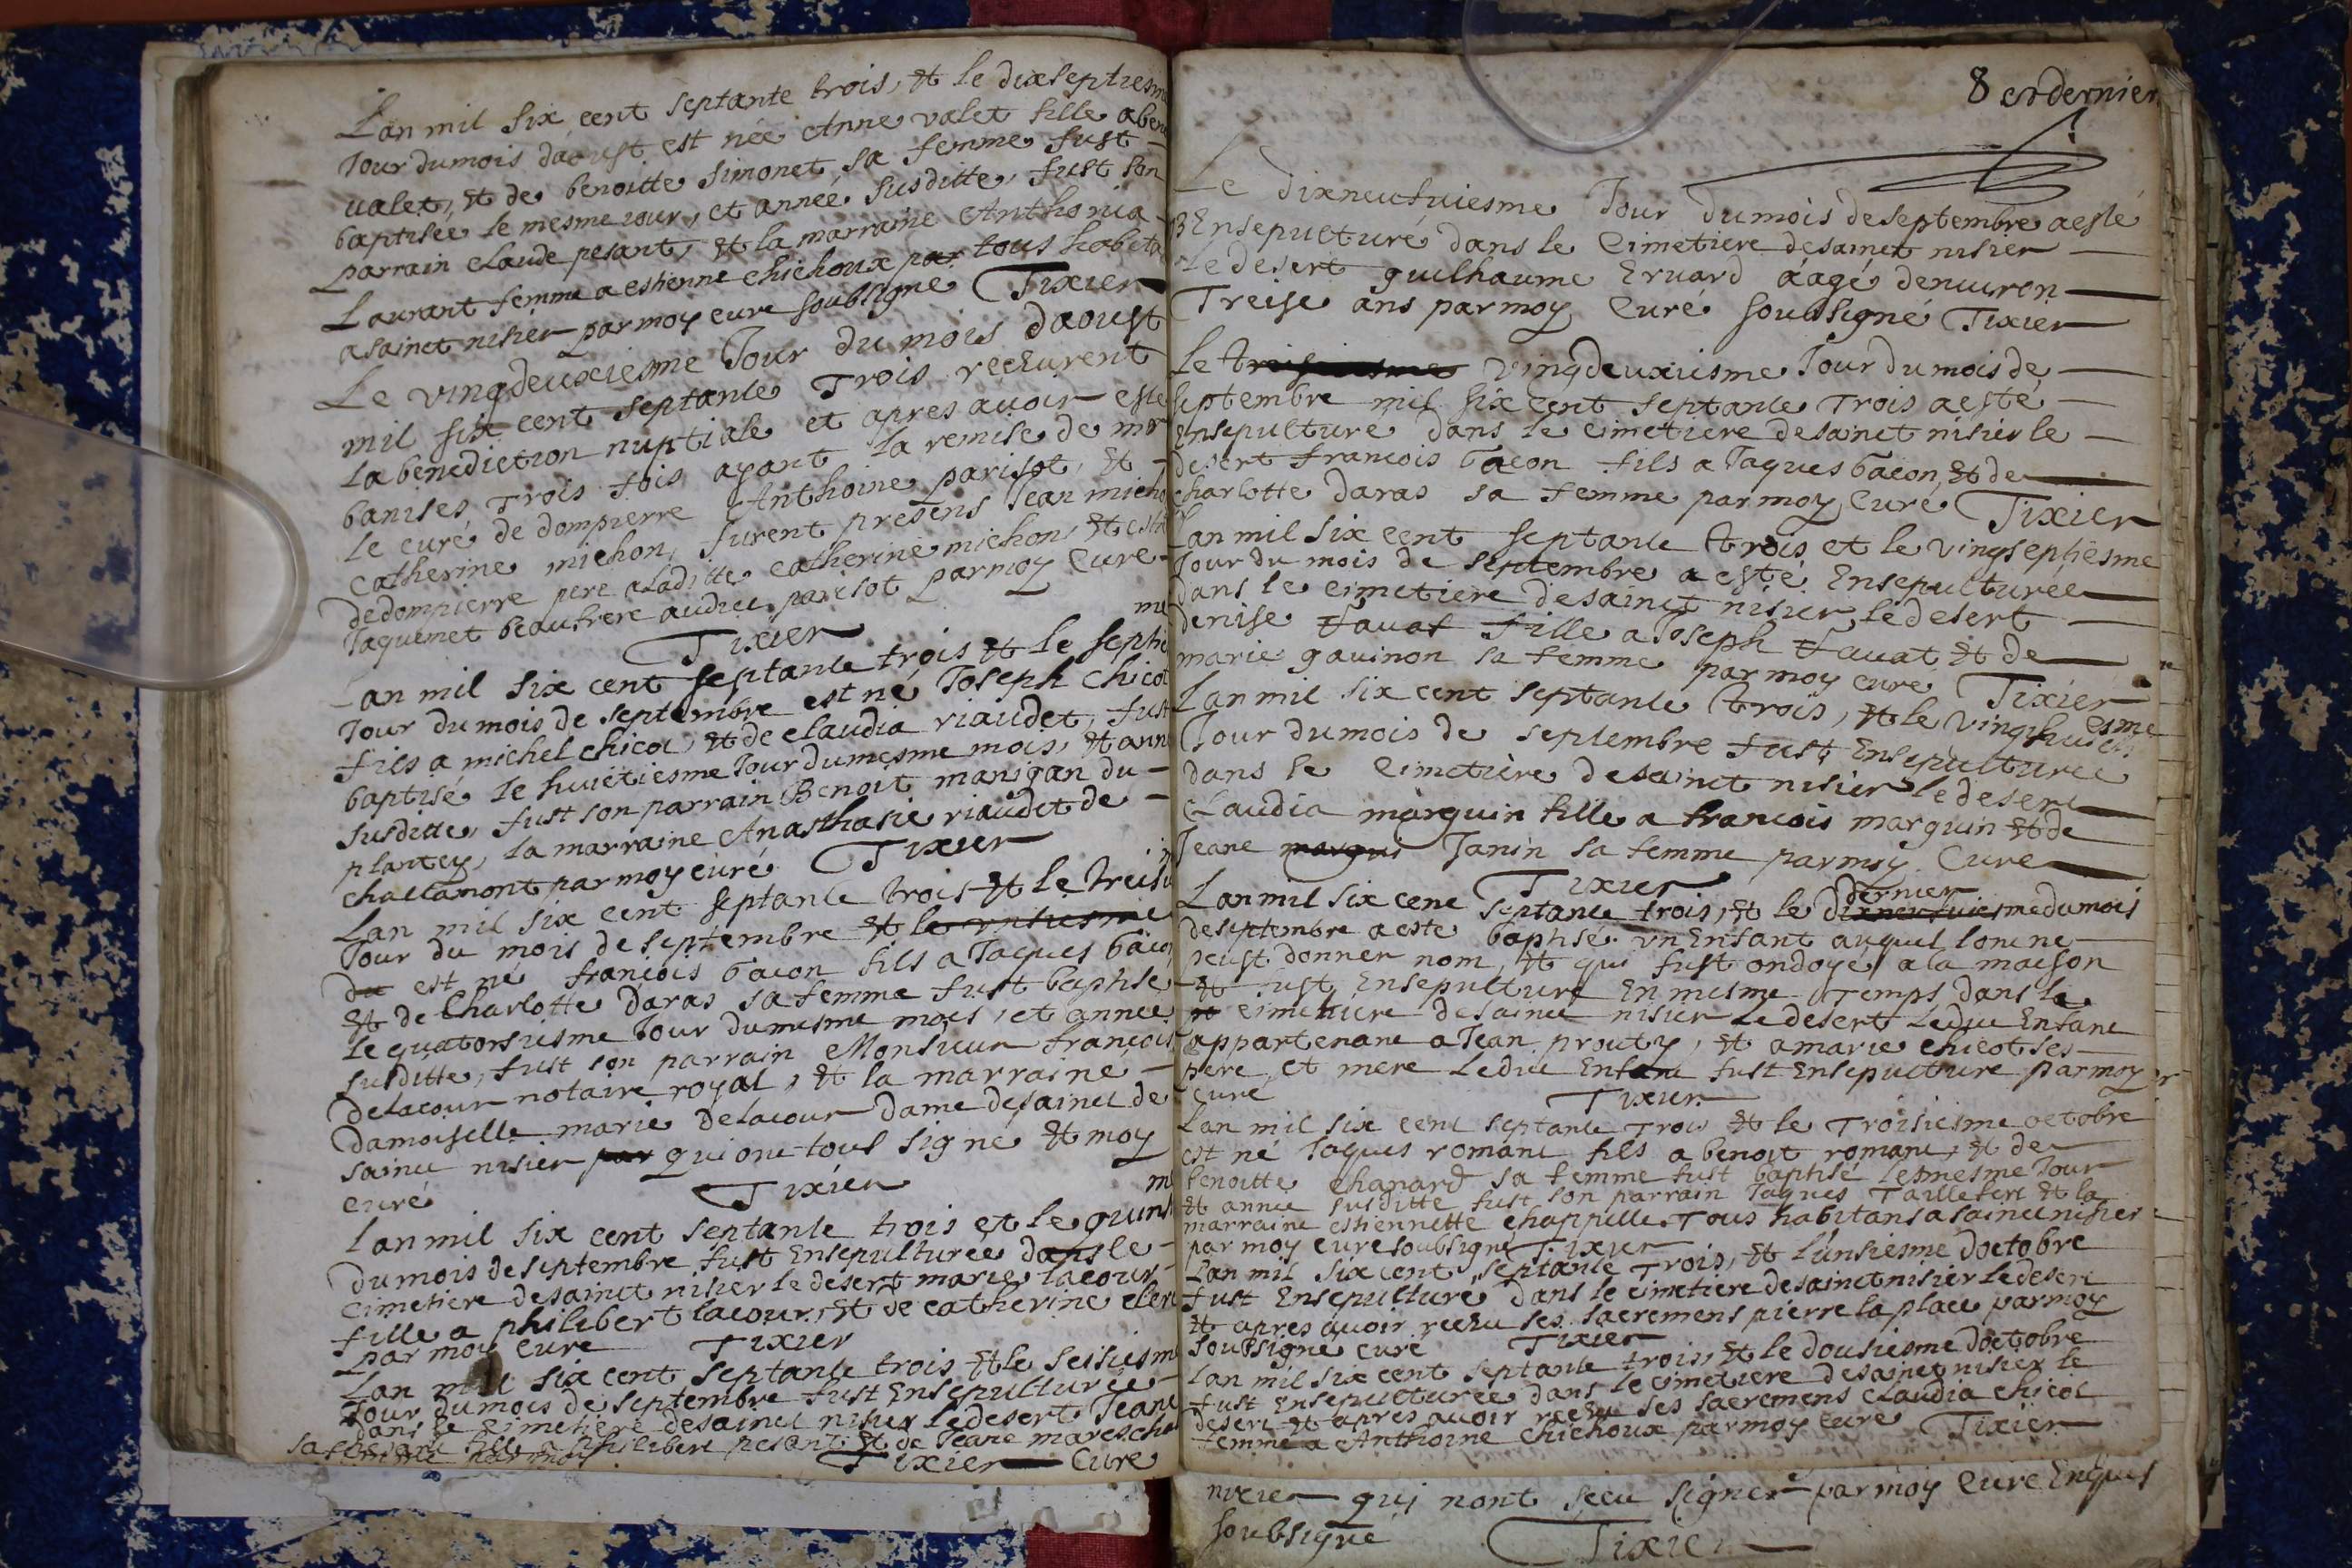 Lan mil six cent septante trois, et le dixseptiesme
Jour du mois daoust est née Anne valet fille a beno
valet, et de benoitte simonet sa femme fust
baptisée le mesme iour, et année susditte, fust son
parrain claude pesant, et la marraine Anthonia
Laurant femme a estienne chichoux par tous habita
a sainct nisier par moy curé soubsigné Tixier
Le vingdeuxiesme Jour du mois daoust
mil six cent septante Trois receurent
la benediction nuptiale et apres auoir esté
banises Trois fois ayant la remise de mr
le curé de dompierre Anthoine parisot, et
Catherine michon, furent presens Jean micho
de dompierre pere a laditte catherine michon, et esti
Jaquemet beaufrere audict parisot par moy Curé
Tixier
Lan mil six cent septante trois et le septie
me
Jour du mois de septembre est né Joseph Chicot
fils a michel chicot, et de claudia riaudet, fust
baptisé le huictiesme Jour du mesme mois, et ann
susditte, fust son parrain Benoit manigan du
plantey, la marraine Anasthasie riaudet de
challamont par moy curé Tixier
Lan mil six cent septante trois et le treisi
Jour du mois de septembre et le unsiesme
du est né françois bacon fils a Jaques bacon
et de Charlotte daras sa femme fust baptisé
le quatorsiesme Jour du mesme mois, et année
susditte, fust son parrain Monsieur françois
delacour notaire royal, et la marraine
damoiselle marie delacour dame de sainct de
sainct nisier par qui ont tous signé et moy
curé Tixier
Lan mil six cent septante trois et le quinsi
me
du mois de septembre fust Ensepulturée dans le
cimetiere de sainct nisier le desert marie lacour
fille a philibert lacour, et de catherine clerc
par moy curé Tixier
Lan mil six cent septante trois et le seisiesm
Jour du mois de septembre fust Ensepulturée
dans le cimetiere de sainct nisier le desert Jeane
fille a philibert pesant et de Jeane mareschal
sa femme par moy Tixier Curé
8 et dernier
Le dixneufuiesme Jour du mois de septembre a esté
Ensepulturé dans le Cimetiere de sainct nisier
le desert guilhaume Eruard aagé denuiron
Treise ans par moy Curé soubsigné Tixier
Le troisiesme vingdeuxiesme Jour du mois de
septembre mil six cent septante Trois a esté
Ensepulturé dans le cimetiere de sainct nisier le
desert françois bacon fils a Jaques bacon, et de
charlotte daras sa femme par moy Curé Tixier
Lan mil six cent septante trois et le vingseptiesme
Jour du mois de septembre a esté Ensepulturée
dans le cimetiere de sainct nisier le desert
denise fauat fille a Joseph fauat et de
marie gauinon sa femme par moy curé Tixier
Lan mil six cent septante trois, et le vinghuicti
esme
Jour du mois de septembre fust Ensepulturée
dans le Cimetiere de sainct nisier le desert
Claudia marguin fille a francois marguin et de
Jeane margui Janin sa femme par moy Curé
Tixier
Lan mil six cent septante trois, et le dixneufuiesme du mois
dernier
de septembre a esté baptisé un Enfant auquel lon ne
peust donner nom, et qui fust ondoyé a la maison
et fust Ensepulturé En mesme Temps dans le
et cimetiere de sainct nisier Le desert Ledict Enfant
appartenant a Jean prouty, et a marie chicot ses
pere, et mere Ledict Enfant fust Ensepulturé par moy
curé Tixier
Lan mil six cent septante Trois et le Troisiesme octobre
est né Jaques romant fils a benoit romant, et de
benoitte chanard sa femme fust baptisé le mesme Jour
et année susditte fust son parrain Jaques Taillefert et la
marraine estiennette chappelle. Tous habitans a sainct nisier
par moy curé soubsigné Tixier
Lan mil six cent septante trois, et lunsiesme doctobre
fust Ensepulturé dans le cimetiere de sainct nisier le desert
et apres auoir receu ses sacremens pierre la place par moy
soubsigné curé Tixier
Lan mil six cent septante trois, et le dousiesme doctobre
fust Ensepulturée dans le cimetiere de sainct nisier le
desert et apres auoir receu ses sacremens claudia chicot
femme a Anthoine chichoux par moy curé Tixier
nizier qui nont sceu signer par moy Curé
soubsigné Tixier